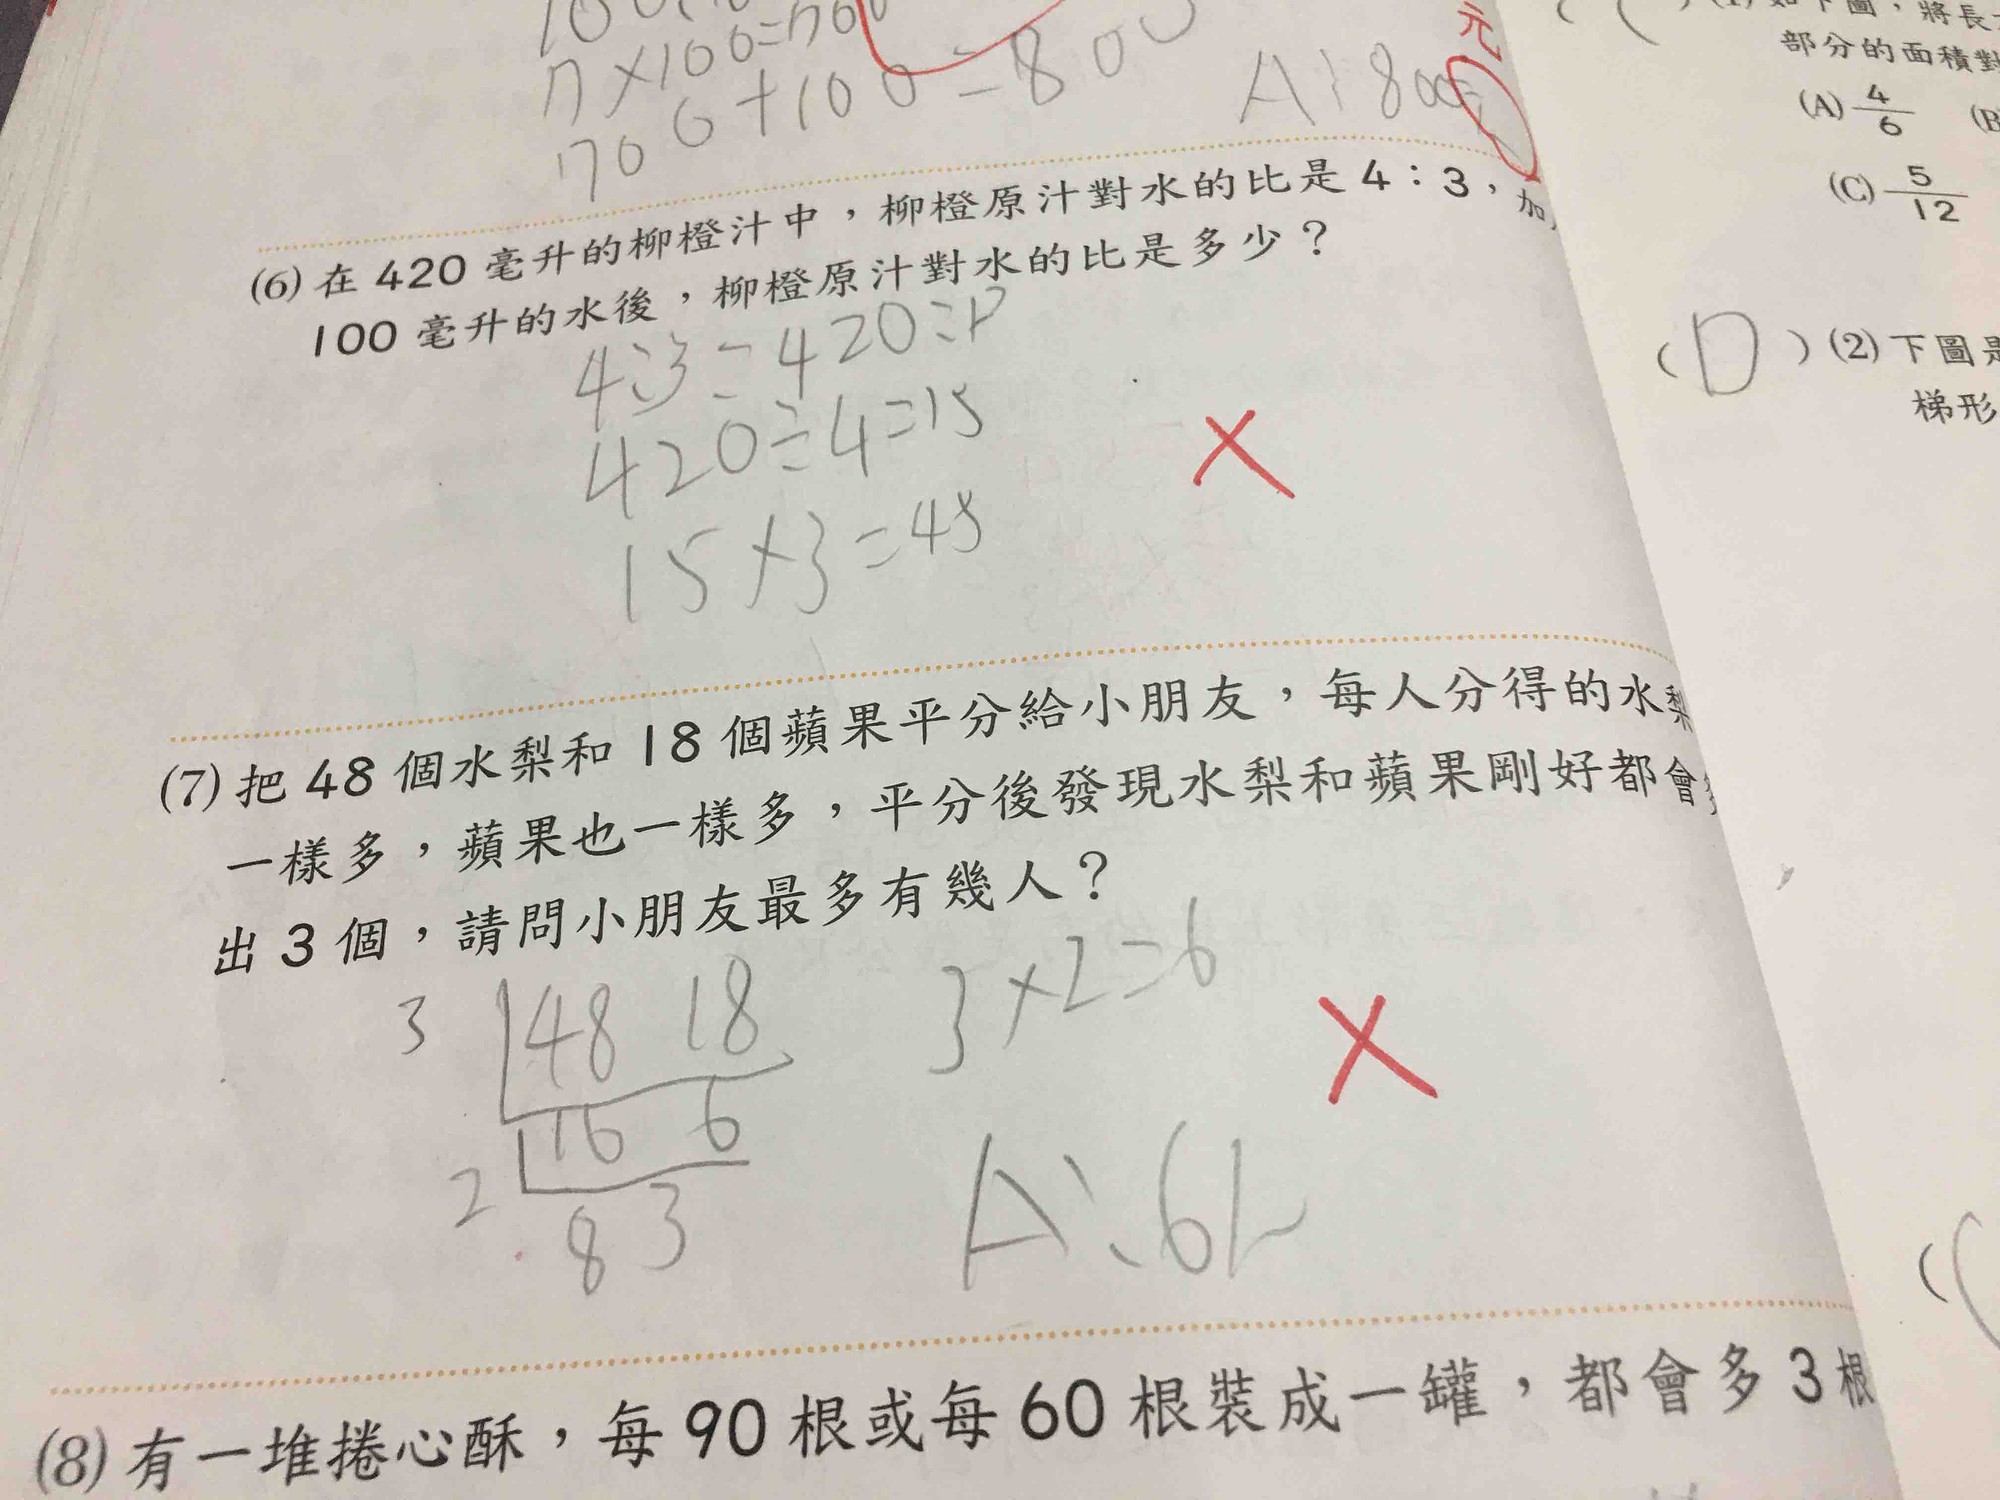 7×100=700
700+100=800
A:800元
(6) 在 420 毫升的柳橙汁中，柳橙原汁對水的比是 4：3，加
100 毫升的水後，柳橙原汁對水的比是多少？
4:3=420:P
420÷4=15
15×3=45
(7) 把 48 個水梨和 18 個蘋果平分給小朋友，每人分得的水梨
一樣多，蘋果也一樣多，平分後發現水梨和蘋果剛好都會
出 3 個，請問小朋友最多有幾人？
3 48 18
2 16 6
8 3
3×2=6
A:6人
(8) 有一堆捲心酥，每 90 根或每 60 根裝成一罐，都會多 3 根
如下圖，將長
部分的面積對
(A) 4/6 (B
(C) 5/12
(D) (2) 下圖是
梯形